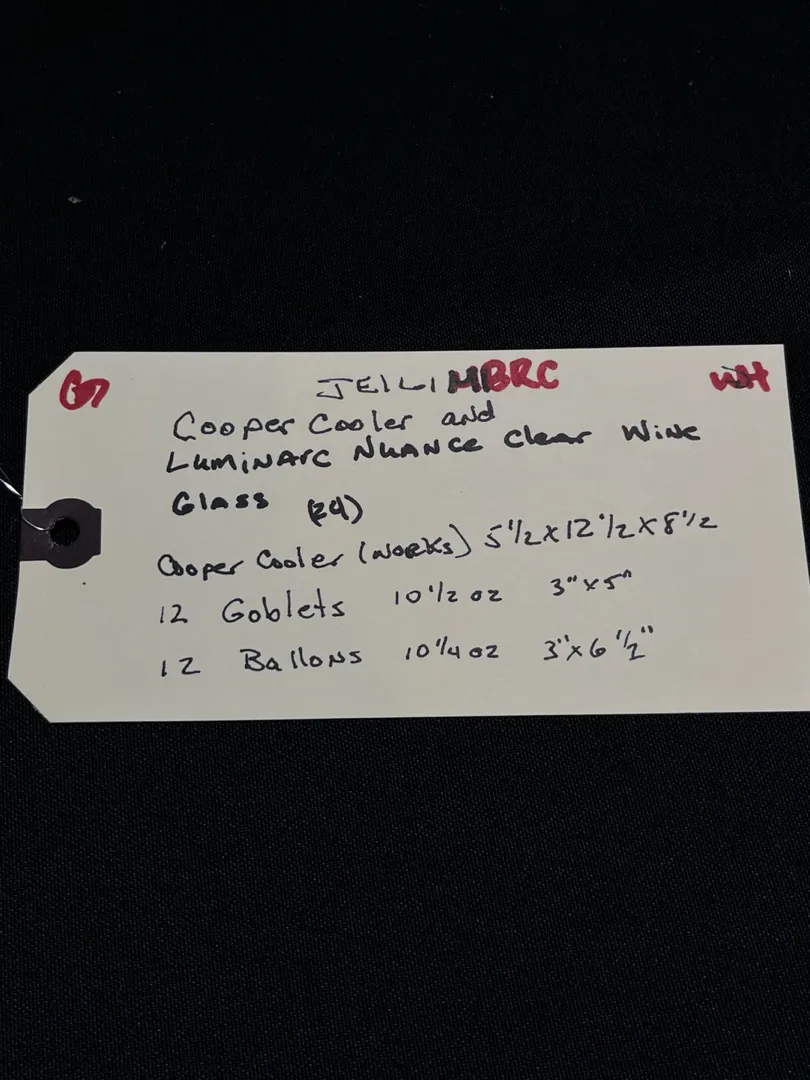 JEILIMBRC WH
Cooper Cooler and
Luminarc Nuance Clear Wine
Glass (24)
Cooper Cooler (works) 5 1/2 x 12 1/2 x 8 1/2
12 Goblets 10 1/2 oz 3" x 5"
12 Ballons 10 1/4 oz 3" x 6 1/2"